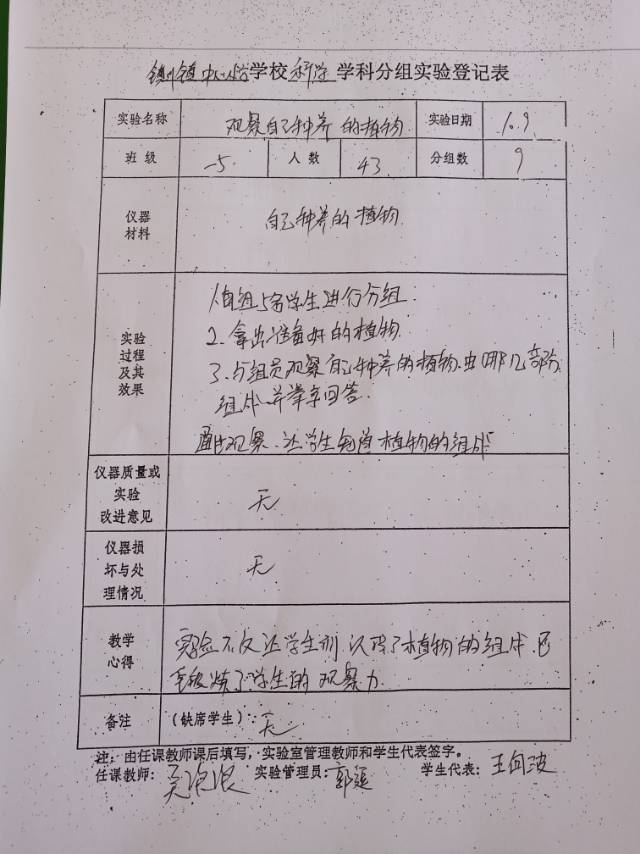 镇川镇中心小学学校科学学科分组实验登记表
实验名称 观察自己种养的植物 实验日期 10.9
班 级 5 人 数 43 分组数 9
仪器
材料
自己种养的植物
实验
过程
及其
效果
1.每组5名学生进行分组.
2.拿出准备好的植物
3.分组员观察自己种养的植物.由哪几部分
组成.并举手回答.
通过观察.让学生知道植物的组成
仪器质量或
实验
改进意见
无
仪器损
坏与处
理情况
无
教学
心得
实验不仅让学生 认识了植物的组成.
了学生的观察力.
备注 (缺席学生): 无
注: 由任课教师课后填写,实验室管理教师和学生代表签字。
任课教师: 实验管理员: 郭延 学生代表: 王向波